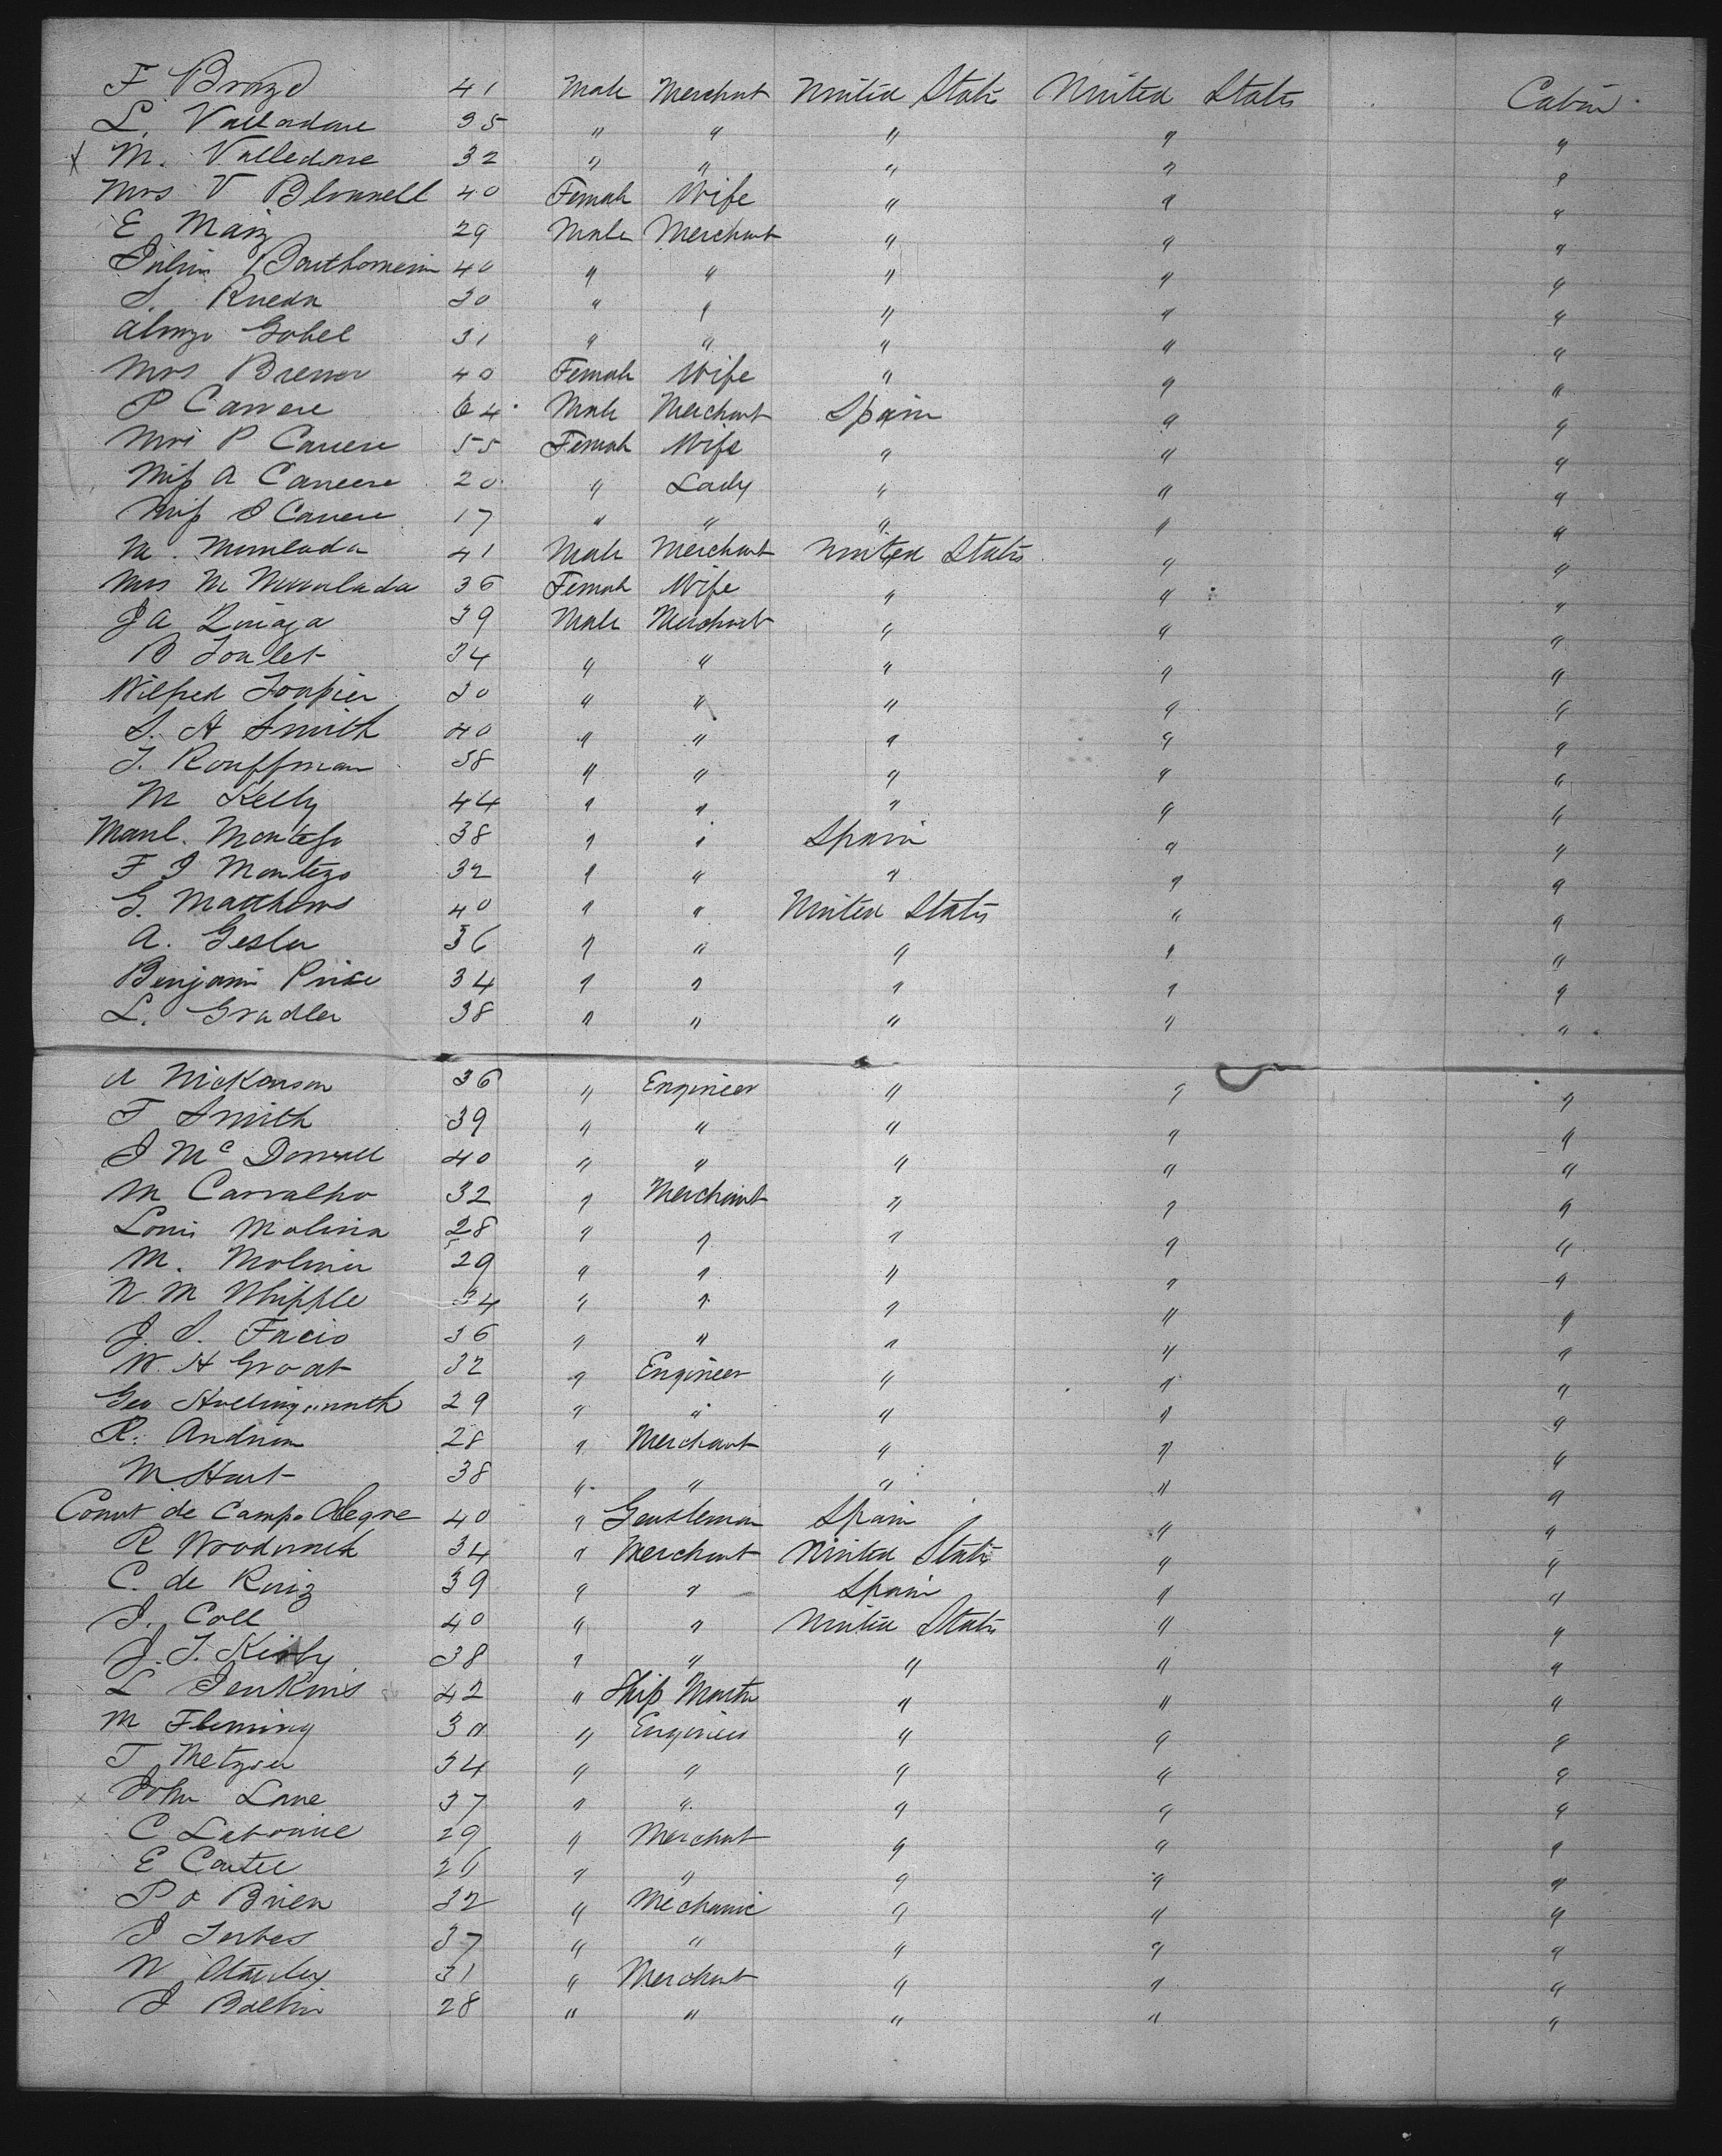 F Brozo 41 Male Merchant United States United States Cabin
L. Valladare 35 " " " " "
x M. Valledare 32 " " " " "
Mrs V Blonnell 40 Female Wife " " "
E Maiz 29 Male Merchant " " "
Julius Barthomein 40 " " " " "
S. Rueda 30 " " " " "
Alonzo Gobel 31 " " " " "
Mrs Bremer 40 Female Wife " " "
P Carrere 64 Male Merchant Spain " "
Mrs P Carrere 55 Female Wife " " "
Miss A Carrere 20 " Lady " " "
Miss J Carrere 17 " " " " "
M. Munlada 41 Male Merchant United States " "
Mrs M Munlada 36 Female Wife " " "
J A 39 Male Merchant " " "
B 34 " " " " "
Wilfred 30 " " " " "
S. H Smith 40 " " " " "
J. Kouffman 38 " " " " "
M Kelly 44 " " " " "
Manl. Montejo 38 " " Spain " "
F J Montejo 32 " " " " "
G. Matthews 40 " " United States " "
A. Gesler 36 " " " " "
Benjamin Price 34 " " " " "
L. Gradler 38 " " " " "
A Nickonson 36 " Engineer " " "
T Smith 39 " " " " "
J McDonnell 40 " " " " "
M Carvalho 32 " Merchant " " "
Louis Molina 28 " " " " "
M. Molina 29 " " " " "
N. M Whipple 34 " " " " "
J. S. Facio 36 " " " " "
W. H Groat 32 " Engineer " " "
Geo Hollingsworth 29 " " " " "
R. 28 " Merchant " " "
M Hart 38 " " " " "
Count de Campo Alegre 40 " Gentleman Spain " "
R 34 " Merchant United States " "
C. de Ruiz 39 " " Spain " "
J. Coll 40 " " United States " "
J. T. Kirby 38 " " " " "
L Jenkins 42 " Ship Master " " "
M Fleming 30 " Engineer " " "
T Metzger 34 " " " " "
John Lane 37 " " " " "
C 29 " Merchant " " "
E Carter 26 " " " " "
P O Brien 32 " Mechanic " " "
J Forbes 37 " " " " "
N Stanley 31 " Merchant " " "
J 28 " " " " "